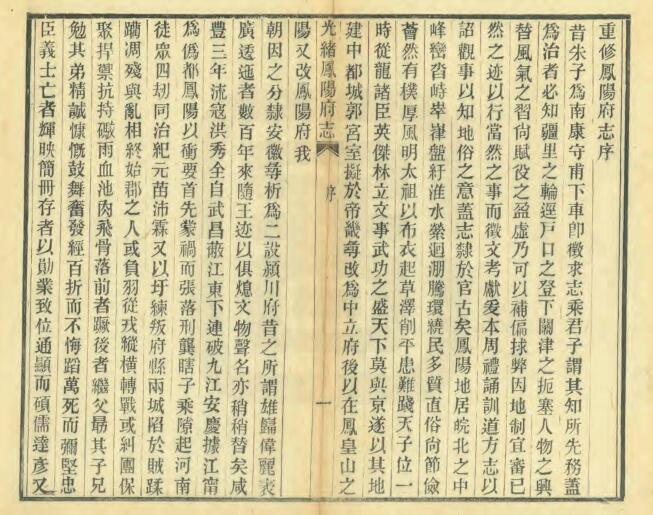 重修鳳陽府志序
昔朱子為南康守甫下車卽徵求志乘君子謂其知所先務蓋
為治者必知疆里之輪逕戸口之登下關津之扼塞人物之興
替風氣之習尙賦役之盈虛乃可以補偏捄弊因地制宜審已
然之迹以行當然之事而徵文考獻爰本周禮誦訓道方志以
詔觀事以知地俗之意蓋志隸於官古矣鳳陽地居皖北之中
峰巒沓峙崒嵂盤紆淮水縈迴淜騰環繞民多質直俗尙節儉
薈然有樸厚風明太祖以布衣起草澤削平患難踐天子位一
時從龍諸臣英傑林立文事武功之盛天下莫與京遂以其地
建中都城郭宮室擬於帝畿尋改為中立府後以在鳳皇山之
光緒鳳陽府志
序
一
陽又改鳳陽府我
朝因之分隸安徽尋析為二設潁川府昔之所謂雄歸偉麗袤
廣逶迤者數百年來隨王迹以俱熄文物聲名亦稍稍替矣咸
豐三年流寇洪秀全自武昌蔽江東下連破九江安慶據江甯
為偽都鳳陽以衝要首先蒙禍而張落刑龔瞎子乘隙起河南
徒眾四刧同治紀元苗沛霖又以圩練叛府縣兩城陷於賊蹂
躪凋殘與亂相終始郡之人或負羽從戎縱橫轉戰或糾團保
聚捍禦抗持礮雨血池肉飛骨落前者蹶後者繼父最其子兄
勉其弟精誠慷慨鼓舞奮發經百折而不悔蹈萬死而彌堅忠
臣義士亡者輝映簡冊存者以勛業致位通顯而碩儒達彥又